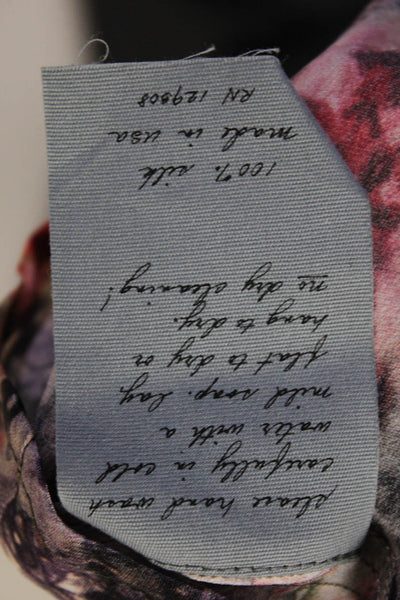 please hand wash
carefully in cold
water with a
mild soap. lay
flat to dry or
hang to dry.
no dry cleaning!
100% silk
made in usa
RN 129808